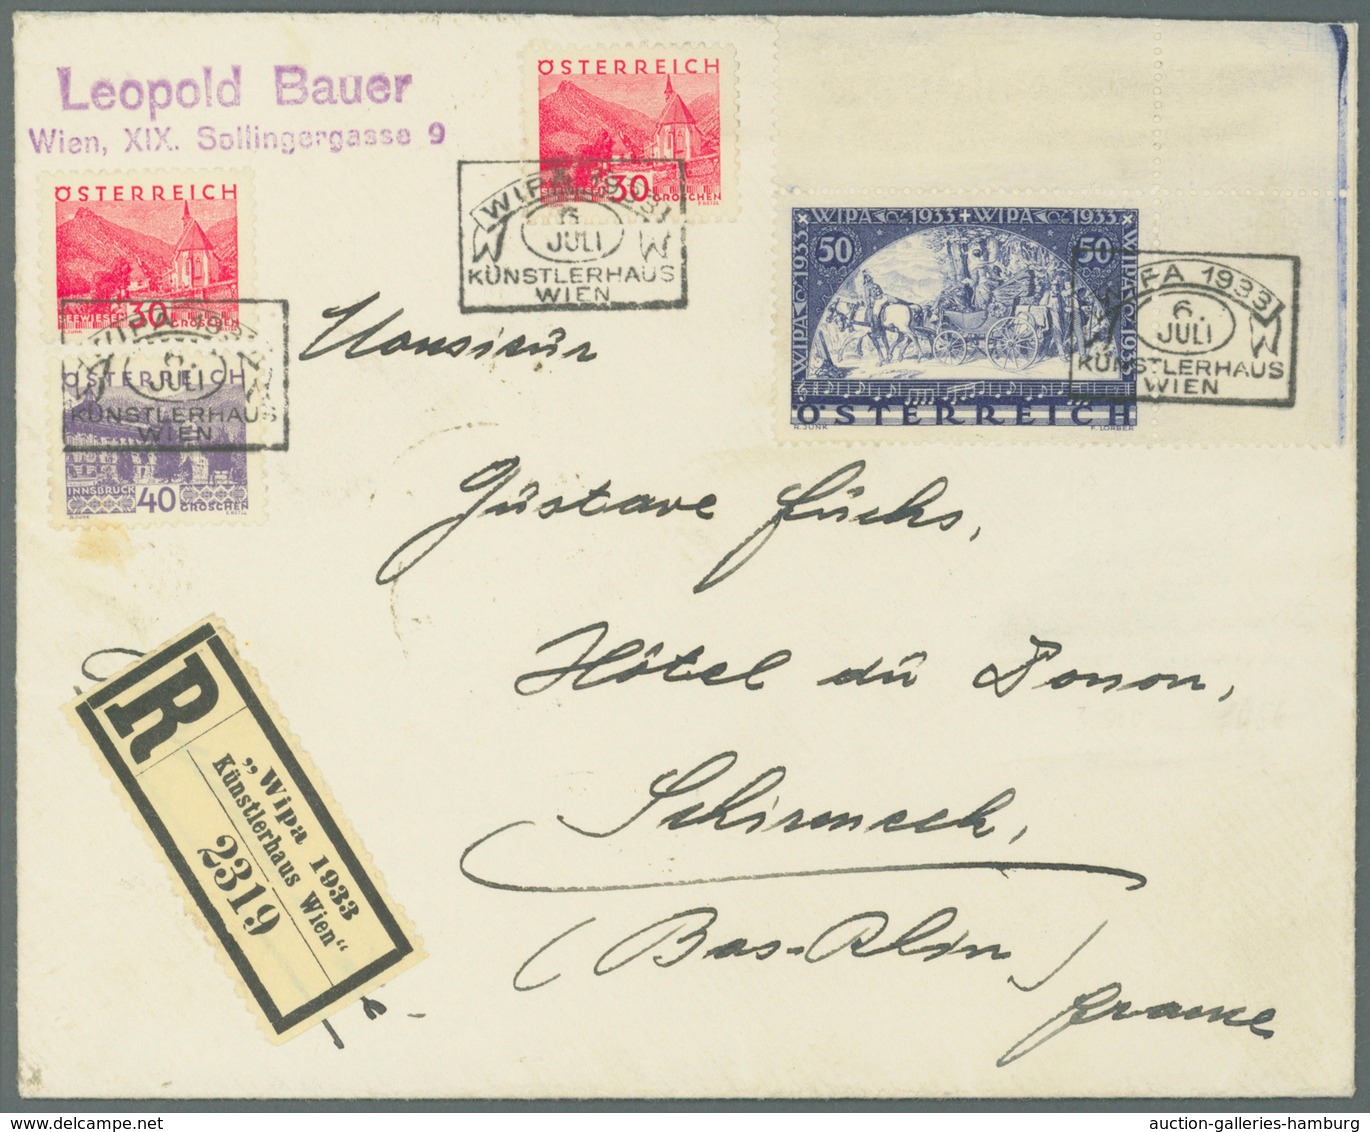 Leopold Bauer
Wien, XIX. Sollingergasse 9
ÖSTERREICH
30
GROSCHEN
WIPA 1933
6.
JULI
KÜNSTLERHAUS
WIEN
ÖSTERREICH
30
SEEWIESEN GROSCHEN
WIPA 193
6.
JULI
KÜNSTLERHAUS
WIEN
ÖSTERREICH
INNSBRUCK 40 GROSCHEN
WIPA 1933 + WIPA 1933
50 50
WIPA 1933
WIPA 1933
ÖSTERREICH
R. JUNK F. LORBER
WIPA 1933
6.
JULI
KÜNSTLERHAUS
WIEN
Monsieur
Gustave Fuchs,
Hôtel du Donon,
Schirmeck,
(Bas-Rhin)
France
R
„Wipa 1933
Künstlerhaus Wien"
2319
auction-galleries-hamburg